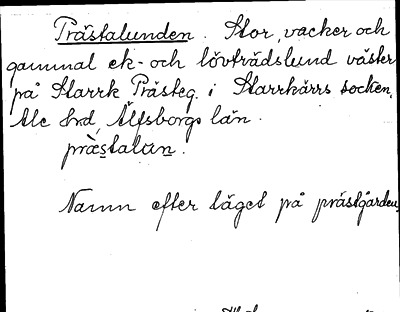 Prästalunden. Stor, vacker och
gammal ek- och lövträdslund väster
på Starrk Prästeg. i Starrkärrs socken,
Ale hrd, Älfsborgs län.
præstalun.
Namn efter läget på prästgården.